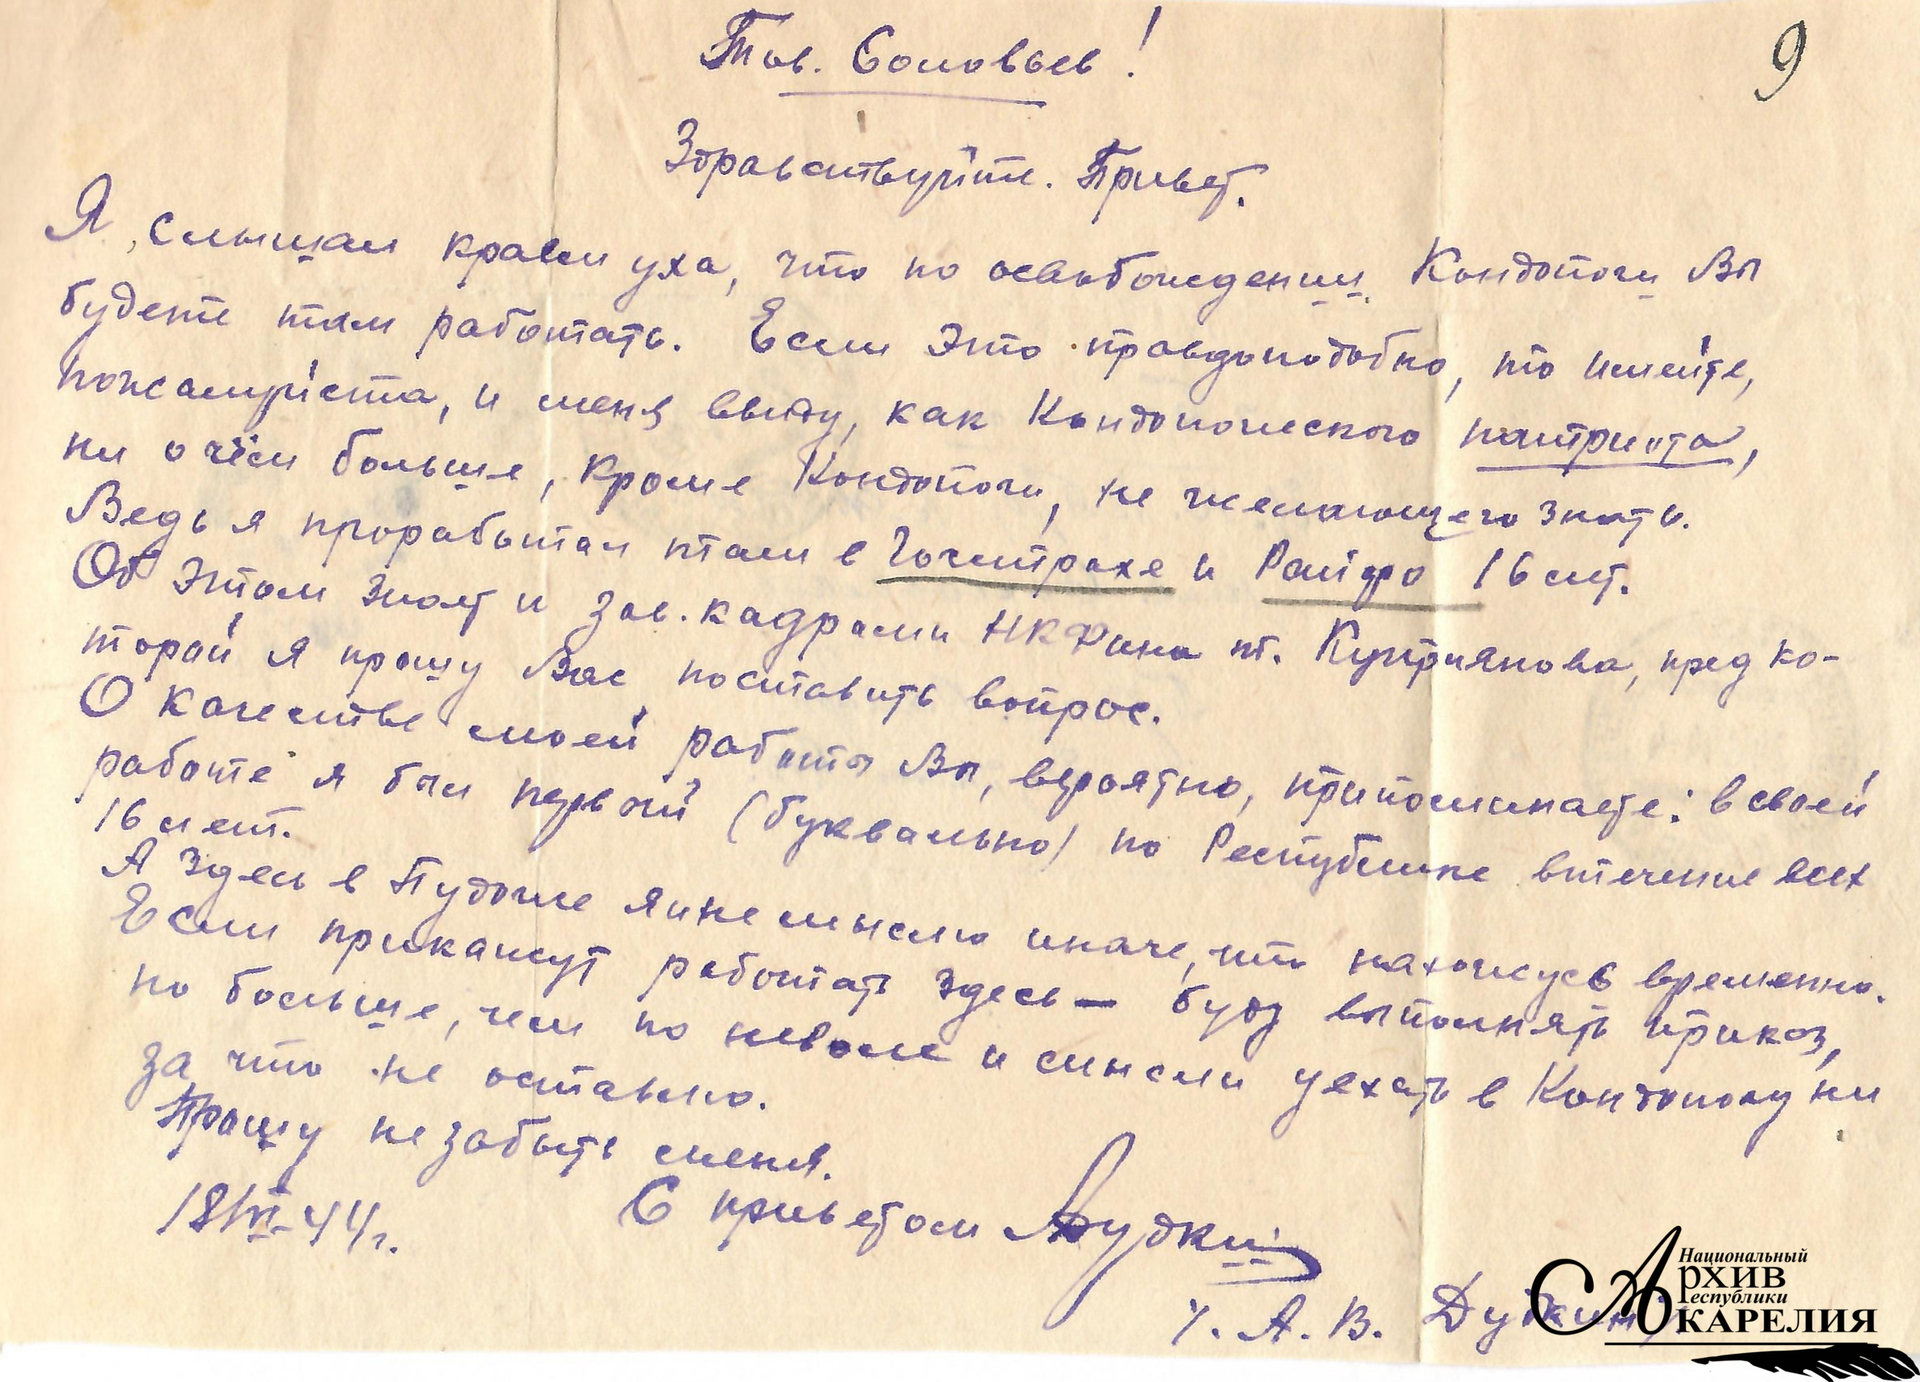 Тов. Соловьев!
9
Здравствуйте. Привет.
Я слышал краем уха, что по освобождении Кондопоги Вы
будете там работать. Если это правдоподобно, то имейте,
пожалуйста, и меня ввиду, как Кондопожского патриота,
ни о чём больше, кроме Кондопоги, не желающего знать.
Ведь я проработал там в Госстрахе и Райфо 16 лет.
Об этом знает и зав. кадрами НКФина т. Куприянова, пред ко-
торой я прошу Вас поставить вопрос.
О качестве моей работы Вы, вероятно, припоминаете: в своей
работе я был первый (буквально) по Республике втечение всех
16 лет.
А здесь в Пудоже я и не мыслю иначе, что нахожусь временно.
Если прикажут работать здесь — буду выполнять приказ,
но больше, чем по неволе и мысли уехать в Кондопогу ни
за что не оставлю.
Прошу не забыть меня.
18/VI-44 г.
С приветом Дудкин
А. В. Дудкин
Национальный
Архив
Республики
Карелия